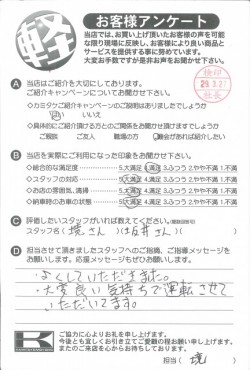 軽
お客様アンケート
当店では、お買い上げ頂いたお客様の声を可能
な限り現場に反映し、お客様により良い商品と
サービスを提供する事に努めています。
大変お手数ですが是非お声をお聞かせ下さい。
検印
29.3.2
社長
A 当店はご紹介を大切にしております。
ご紹介キャンペーンについてお聞かせ下さい。
◇カミタケご紹介キャンペーンのご説明はありましたでしょうか
はい いいえ
◇具体的にご紹介頂ける方とのご関係をお聞かせ頂けますでしょうか
ご親族 ご友人 職場の方
B 当店を実際にご利用になった印象をお聞かせ下さい。
◇総合的な満足度 5.大満足 4.満足 3.ふつう 2.やや不満 1.不満
◇スタッフの対応 5.大満足 4.満足 3.ふつう 2.やや不満 1.不満
◇お店の雰囲気、清掃 5.大満足 4.満足 3.ふつう 2.やや不満 1.不満
◇納車時のお車の状態 5.大満足 4.満足 3.ふつう 2.やや不満 1.不満
C 評価したいスタッフがいれば教えてください。
スタッフ名 ( 境さん ) ( 坂井さん ) ( )
D 担当させて頂きましたスタッフへのご指摘、ご指導メッセージを
お願いします。応援メッセージもぜひお願いします。
・よくしていただきました。
・大変良い気持ちで運転させて
いただいてます。
K
ご協力に心よりお礼を申し上げます。
今後とも宜しくお引き立てご愛顧の程お願い申し上げます。
またのご来店を心からお待ちしております。
担当( 境 )